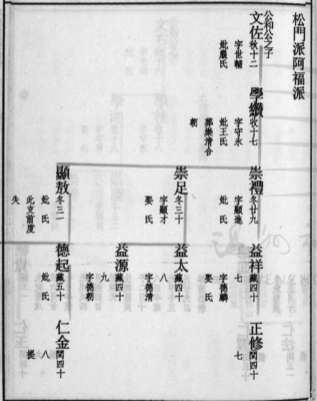 松門派阿福派
公和公之子
文佐 秋十二
字世輔
妣嚴氏
學 收十七
字守永
妣王氏
葬樂清合
朝
崇禮 冬廿九
字顯進
妣 氏
崇足 冬三十
字顯才
娶 氏
顯敖 冬三一
妣 氏
此支前度
失
益祥 藏四十
七
字德麟
娶 氏
益太 藏四十
八
字德清
益源 藏四十
九
字德朝
德起 藏五十
妣 氏
正修 閏四十
七
仁金 閏四十
八
提